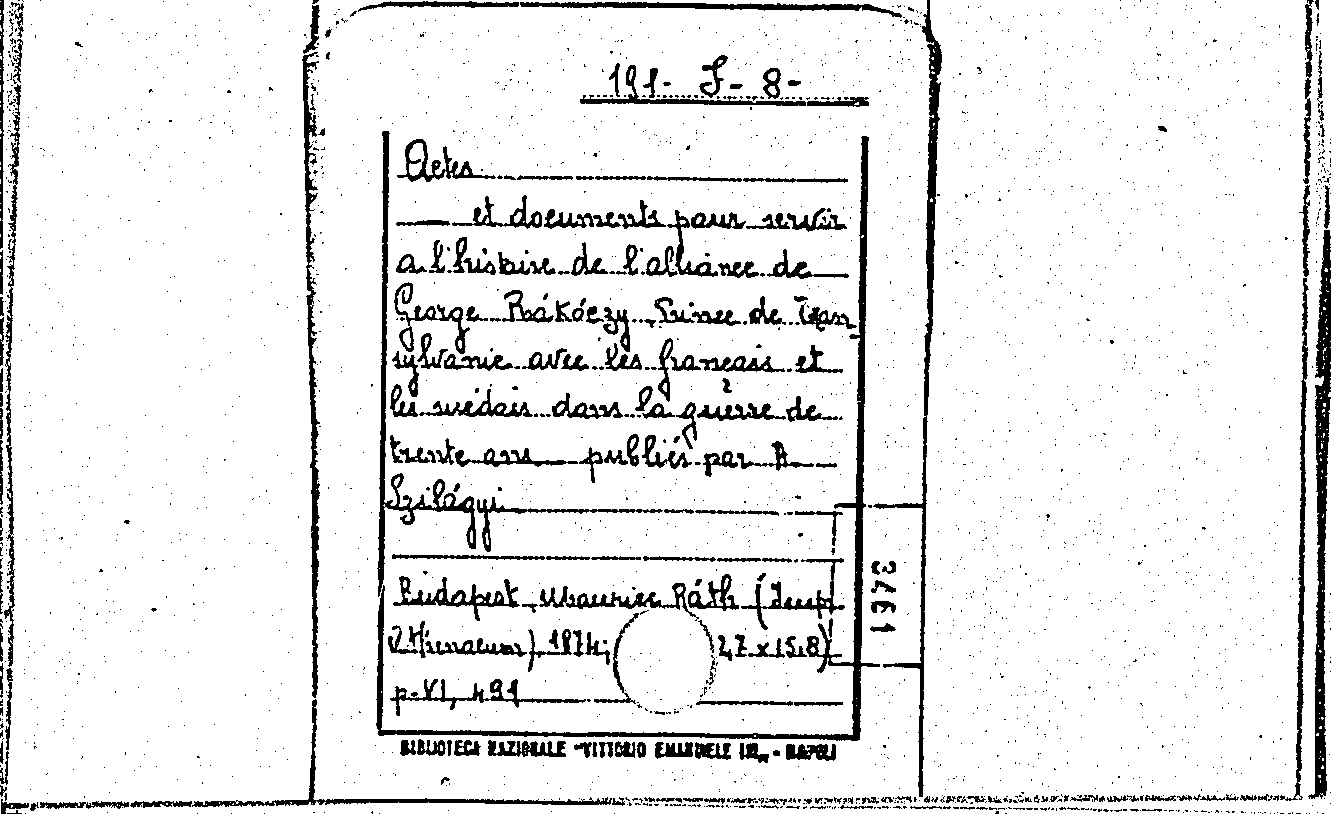 191- J- 8-
Actes
et documents pour servir
a l'histoire de l'alliance de
George Rákóczy, Prince de Tran
sylvanie avec les français et
les suédois dans la guèrre de
trente ans publiés par A
Szilágyi
Budapest, Maurice Ráth (Imp
Athenaeum) 1874; 27 x 15.8)
p. VI, 491
3461
BIBLIOTECA NAZIONALE "VITTORIO EMANUELE III„ - NAPOLI